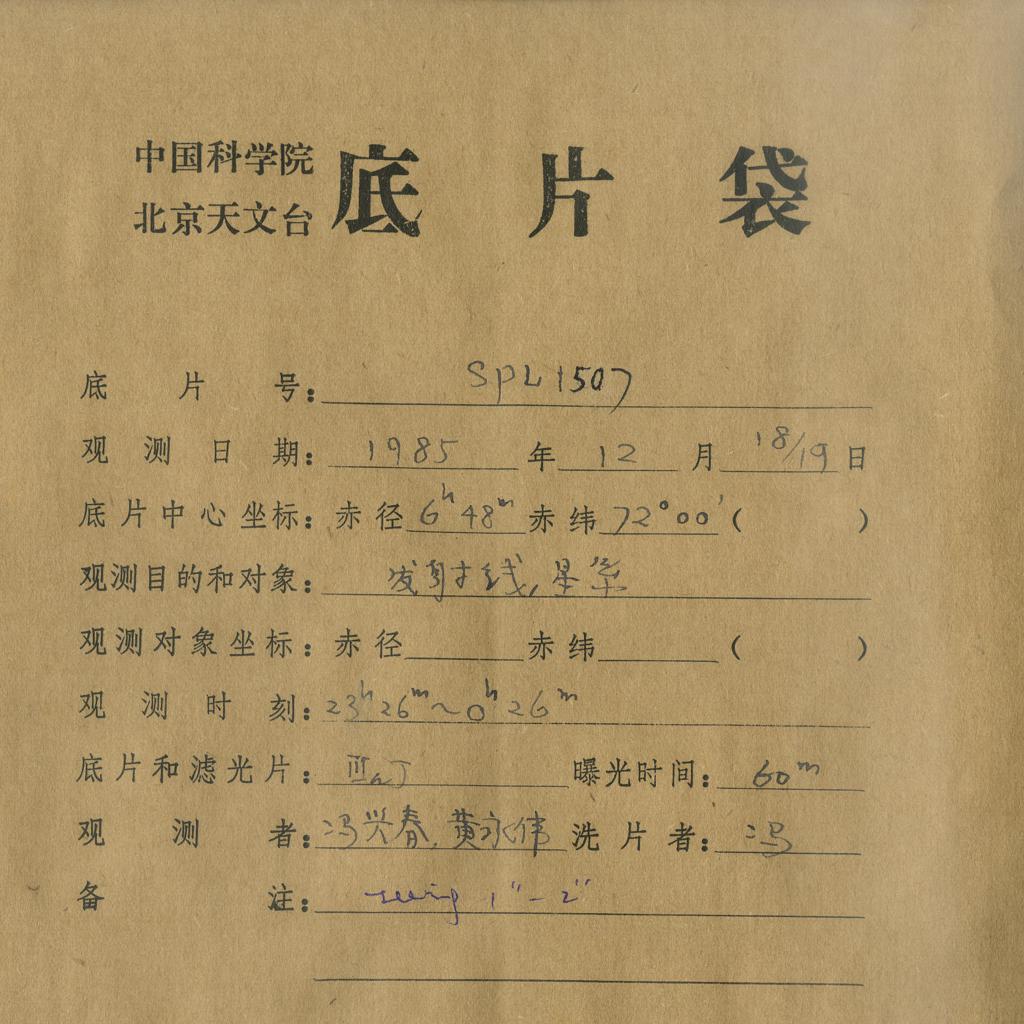 中国科学院
北京天文台
底片袋
底片号：SPL1507
观测日期：1985年12月18/19日
底片中心坐标：赤径6h48m赤纬72°00′（ ）
观测目的和对象：发射线，星系
观测对象坐标：赤径 赤纬 （ ）
观测时刻：23h26m~0h26m
底片和滤光片：ⅢaJ 曝光时间：60m
观测者：冯兴春，黄永伟 洗片者：冯
备注：seeing 1″-2″